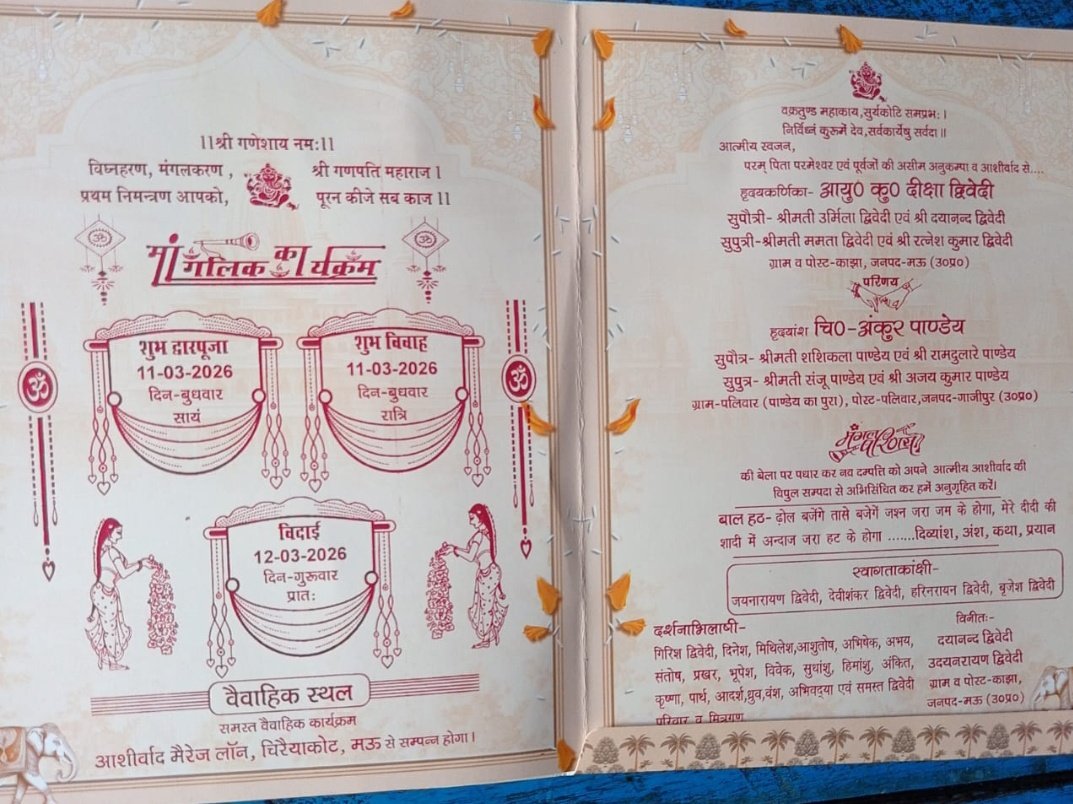 ।।श्री गणेशाय नमः।।
विघ्नहरण, मंगलकरण , श्री गणपति महाराज ।
प्रथम निमन्त्रण आपको, पूरन कीजे सब काज ।।
मांगलिक कार्यक्रम
शुभ द्वारपूजा
11-03-2026
दिन-बुधवार
सायं
शुभ विवाह
11-03-2026
दिन-बुधवार
रात्रि
ॐ
ॐ
विदाई
12-03-2026
दिन-गुरूवार
प्रातः
वैवाहिक स्थल
समस्त वैवाहिक कार्यक्रम
आशीर्वाद मैरेज लॉन, चिरैयाकोट, मऊ से सम्पन्न होगा।
वक्रतुण्ड महाकाय,सुर्यकोटि समप्रभः ।
निर्विघ्नं कुरूमें देव,सर्वकार्येषु सर्वदा ॥
आत्मीय स्वजन,
परम् पिता परमेश्वर एवं पूर्वजों की असीम अनुकम्पा व आशीर्वाद से....
हृदयकर्णिका- आयु0 कु0 दीक्षा द्विवेदी
सुपौत्री- श्रीमती उर्मिला द्विवेदी एवं श्री दयानन्द द्विवेदी
सुपुत्री-श्रीमती ममता द्विवेदी एवं श्री रत्नेश कुमार द्विवेदी
ग्राम व पोस्ट-काझा, जनपद-मऊ (उ0प्र0)
परिणय
हृदयांश चि0-अंकुर पाण्डेय
सुपौत्र- श्रीमती शशिकला पाण्डेय एवं श्री रामदुलारे पाण्डेय
सुपुत्र- श्रीमती संजू पाण्डेय एवं श्री अजय कुमार पाण्डेय
ग्राम-पलिवार (पाण्डेय का पुरा), पोस्ट-पलिवार,जनपद-गाजीपुर (उ0प्र0)
मंगल परिणय
की बेला पर पधार कर नव दम्पत्ति को अपने आत्मीय आशीर्वाद की
विपुल सम्पदा से अभिसिंचित कर हमें अनुगृहित करें।
बाल हट- ढ़ोल बजेंगे तासे बजेगें जश्न जरा जम के होगा, मेरे दीदी की
शादी में अन्दाज जरा हट के होगा .......दिव्यांश, अंश, कथा, प्रयान
स्वागताकांक्षी-
जयनारायण द्विवेदी, देवीशंकर द्विवेदी, हरिनरायन द्विवेदी, बृजेश द्विवेदी
दर्शनाभिलाषी-
गिरिश द्विवेदी, दिनेश, मिथिलेश,आशुतोष, अभिषेक, अभय,
संतोष, प्रखर, भूपेश, विवेक, सुधांशु, हिमांशु, अंकित,
कृष्णा, पार्थ, आदर्श,ध्रुव,वंश, अभिवद्या एवं समस्त द्विवेदी
परिवार व मित्रगण
विनीतः-
दयानन्द द्विवेदी
उदयनरायण द्विवेदी
ग्राम व पोस्ट-काझा,
जनपद-मऊ (उ0प्र0)